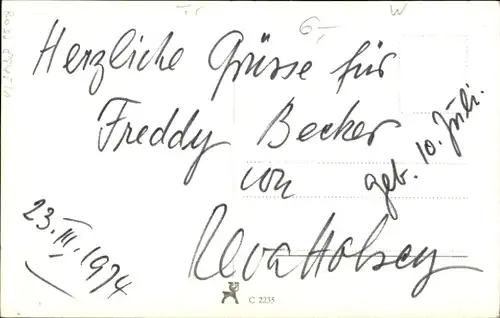 6,- W
Herzliche Grüsse für
Freddy Becker
von
geb. 10. Juli.
23. III. 1974
C 2235